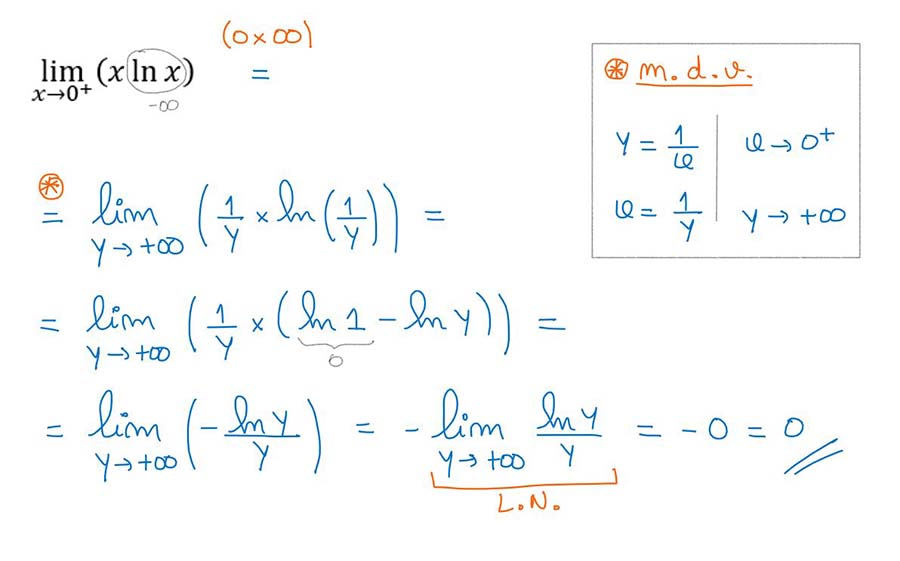 (0 × ∞)
lim x→0⁺ (x ln x) =
-∞
⊛ m.d.v.
y = 1/x | x → 0⁺
x = 1/y | y → +∞
⊛
= lim y→+∞ (1/y × ln(1/y)) =
= lim y→+∞ (1/y × (ln 1 - ln y)) =
0
= lim y→+∞ (- ln y/y) = - lim y→+∞ ln y/y = -0 = 0
L.N.